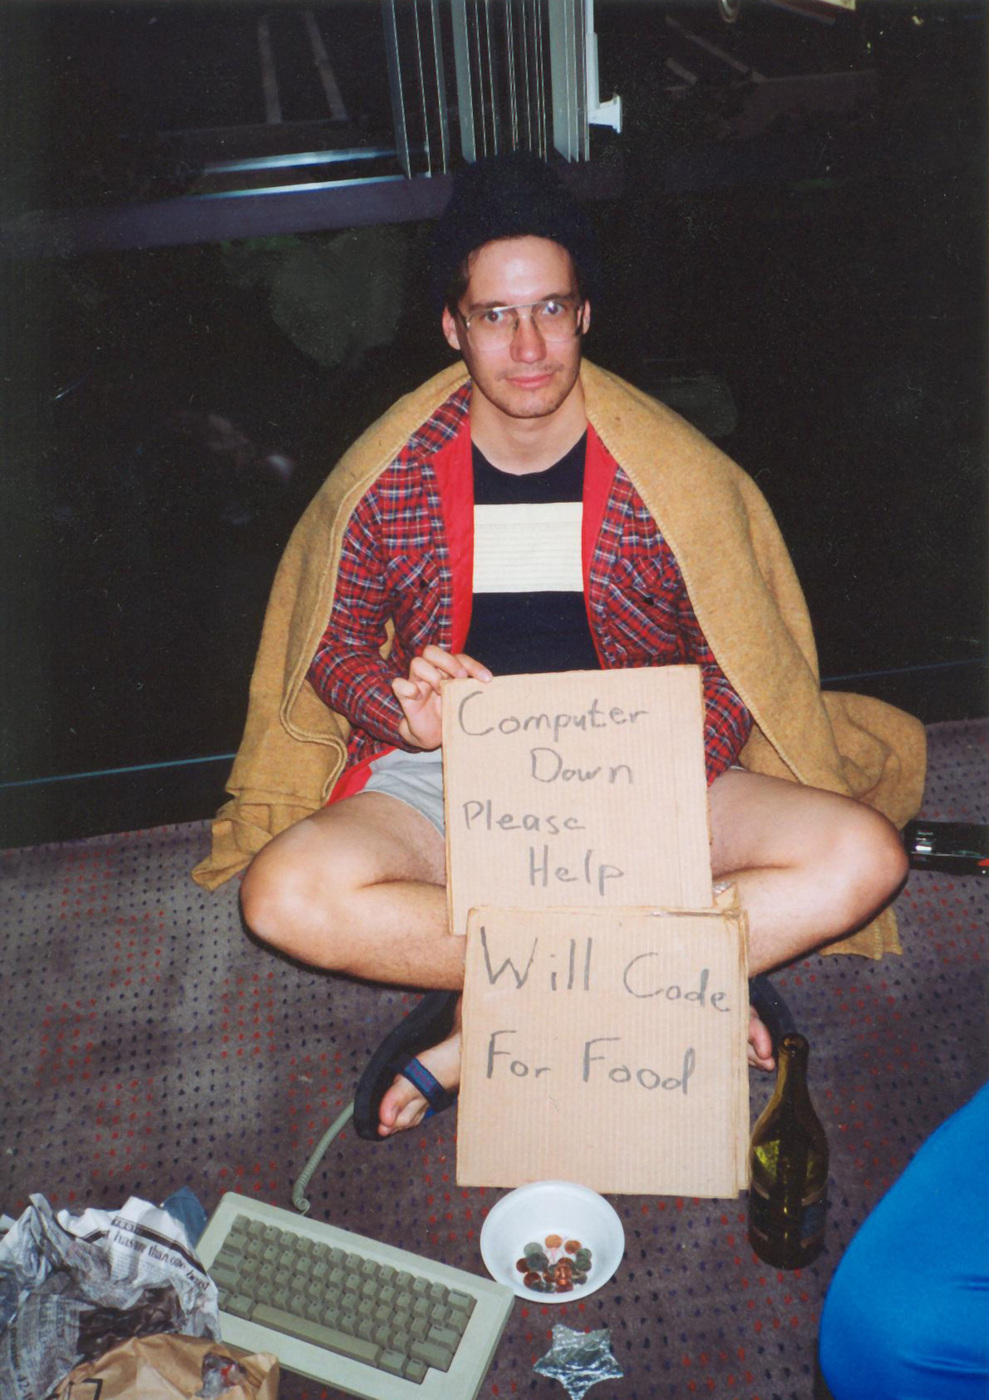 Computer
Down
Please
Help
Will Code
For Food